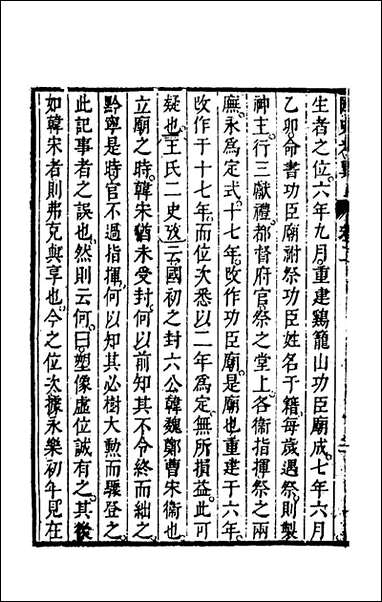 生者之位。六年九月。重建鷄籠山功臣廟成。七年六月
乙卯。命書功臣廟祔祭功臣姓名于籍。每歲遇祭。則製
神主。行三獻禮。都督府官祭之堂上。各衞指揮祭之兩
廡。永爲定式。十七年。改作功臣廟。是廟也。重建于六年。
改作于十七年。而位次悉以二年爲定。無所損益。此可
疑也。王氏二史攷云。國初之封六公。韓魏鄭曹宋衞也。
立廟之時。韓宋猶未受封。何以前知其不令終而絀之。
黔寧是時官不過指揮。何以知其必樹大勳而驟登之。
此記事者之誤也。然則云何。曰。塑像虛位。誠有之。其後
如韓宋者。則弗克與享也。今之位次。據永樂初年見在